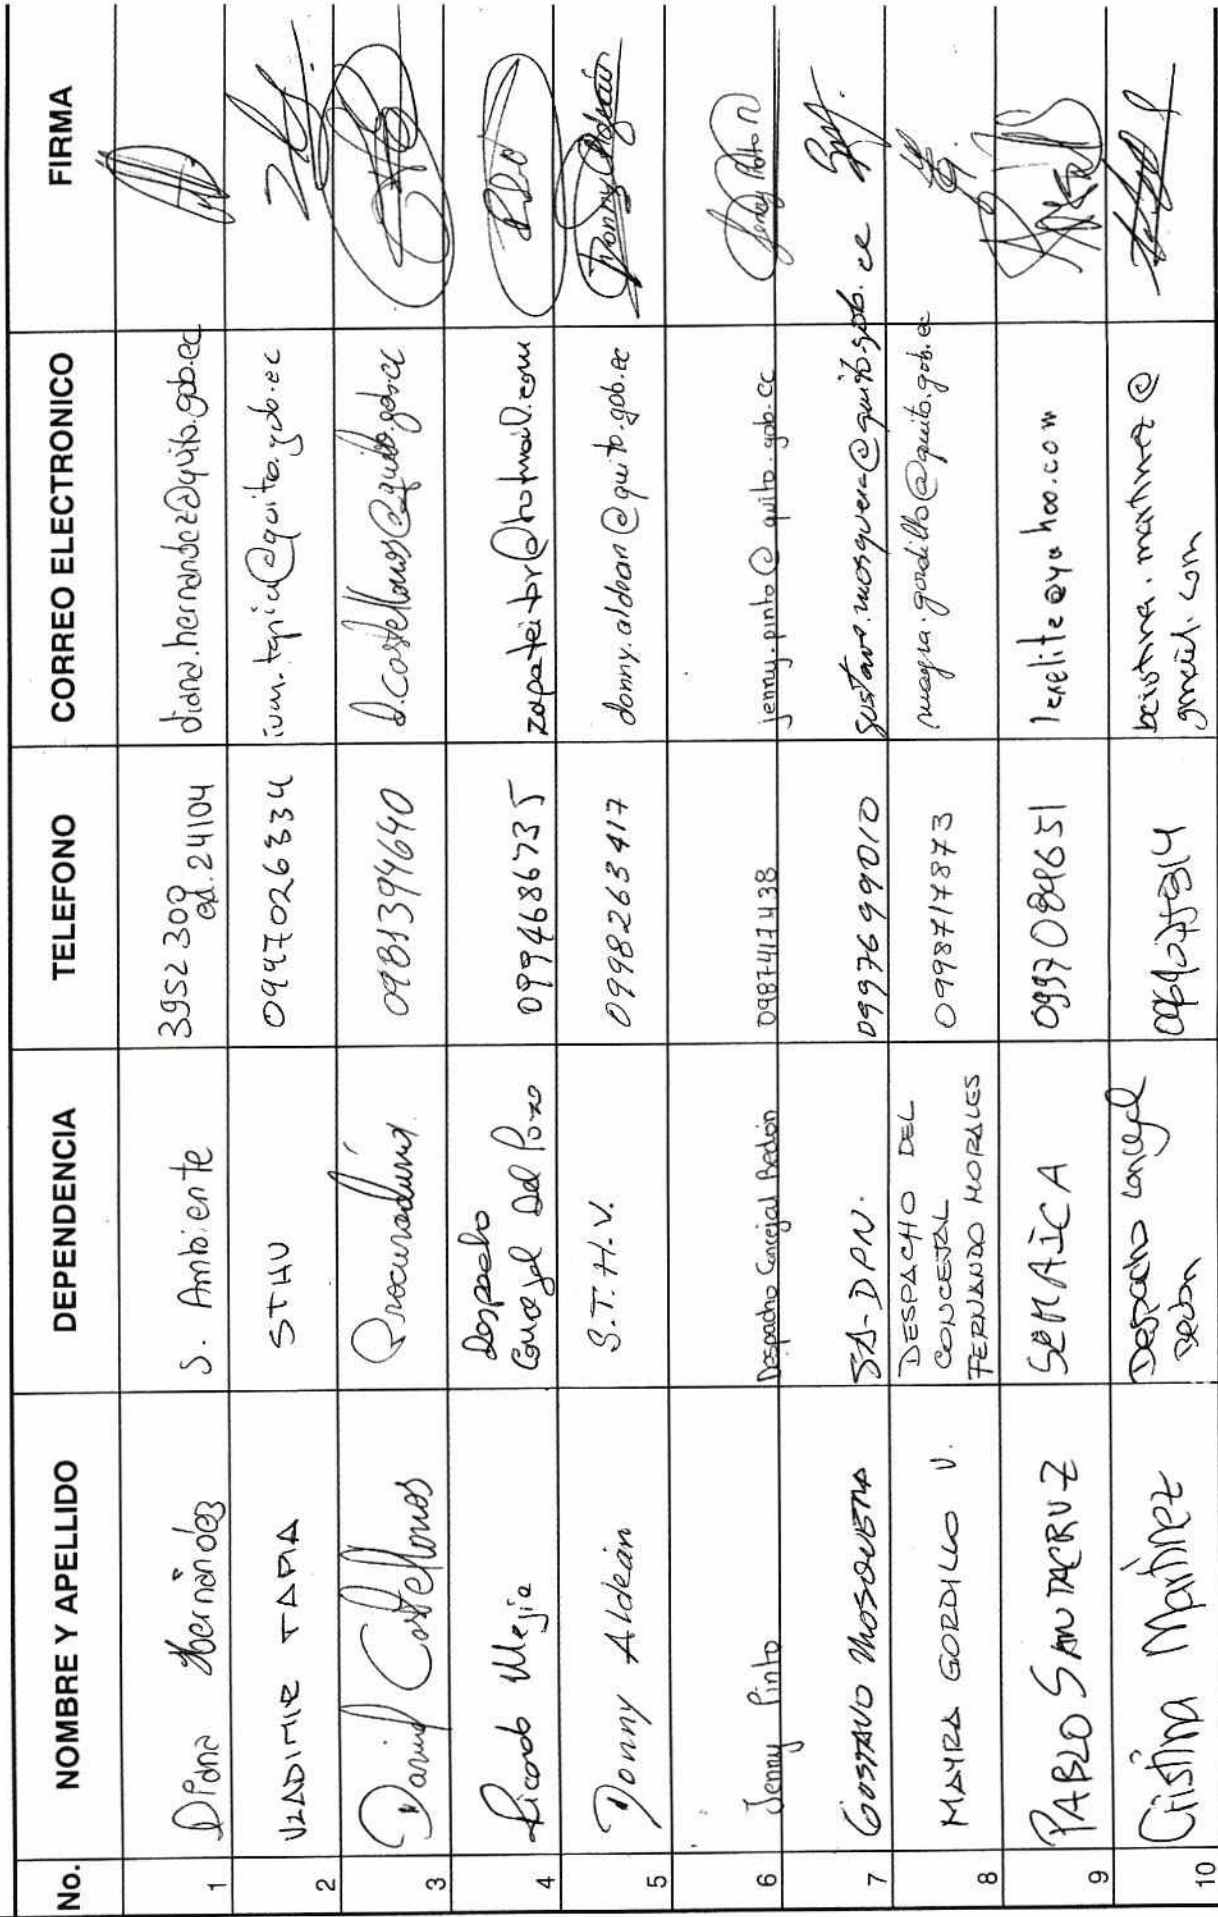 No. NOMBRE Y APELLIDO DEPENDENCIA TELEFONO CORREO ELECTRONICO FIRMA
1 Diana Hernández S. Ambiente 3952 300 diana.hernandez@quito.gob.ec
ed. 24104
2 VLADIMIR TAPIA STHV 0997026334 ivan.tapia@quito.gob.ec
3 Daniel Castellanos Procuraduría 0981394640 d.castellanos@quito.gob.ec
4 Ricardo Mejía Despacho 0994686735 zapateitor@hotmail.com
Concejal Del Pozo
5 Donny Aldeán S.T.H.V. 0998263417 donny.aldean@quito.gob.ec Donny Aldeán
6 Jenny Pinto Despacho Concejal Bedón 0987417438 jenny.pinto@quito.gob.ec Jenny Pinto
7 GUSTAVO MOSQUERA SA-DPN. 0997699010 gustavo.mosquera@quito.gob.ec
8 MAYRA GORDILLO V. DESPACHO DEL 0998717873 mayra.gordillo@quito.gob.ec
CONCEJAL
FERNANDO MORALES
9 PABLO SANTACRUZ SEMAICA 0997084651 lexelite@yahoo.com
10 Cristina Martínez Despacho Concejal bcristina.martinez@
Bedón gmail.com